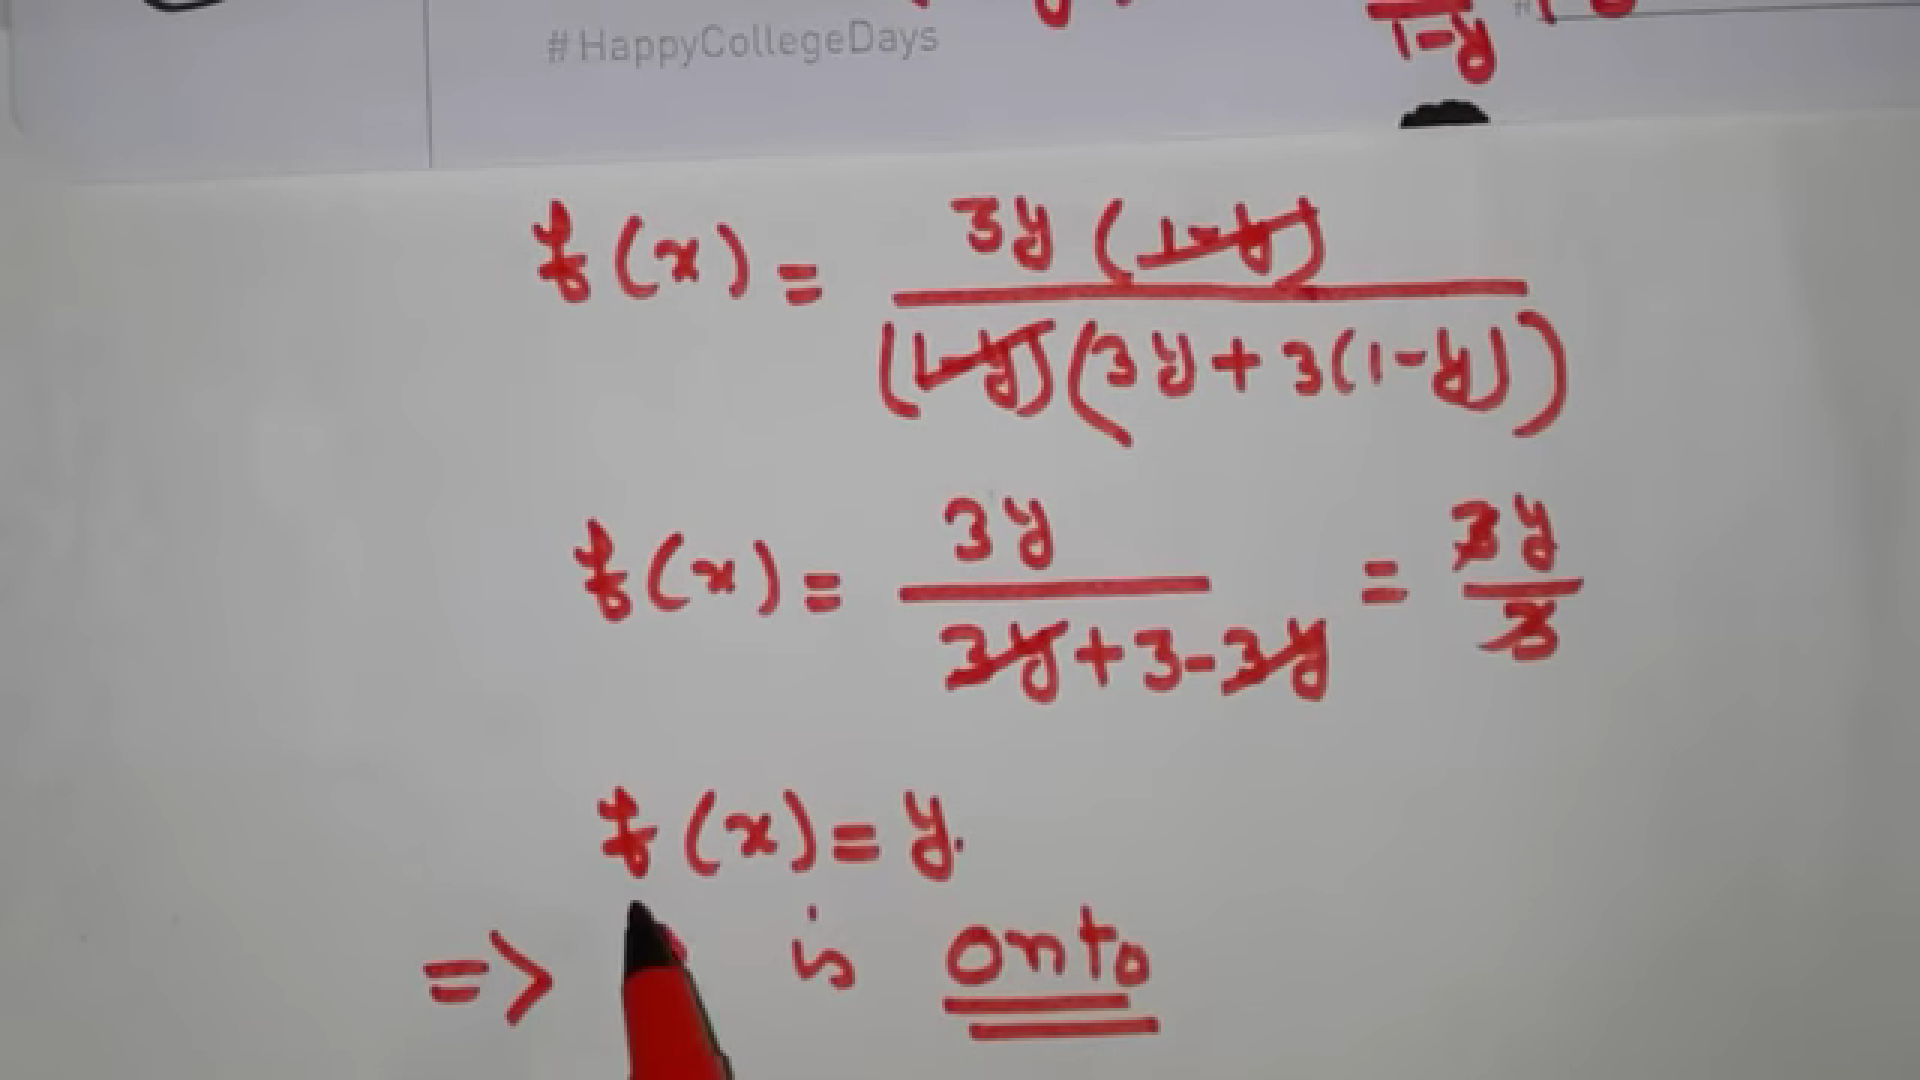 #HappyCollegeDays
1-y
f(x) = 3y(1-y) / (1-y)(3y+3(1-y))
f(x) = 3y / 3y+3-3y = 3y / 3
f(x) = y.
=> is onto